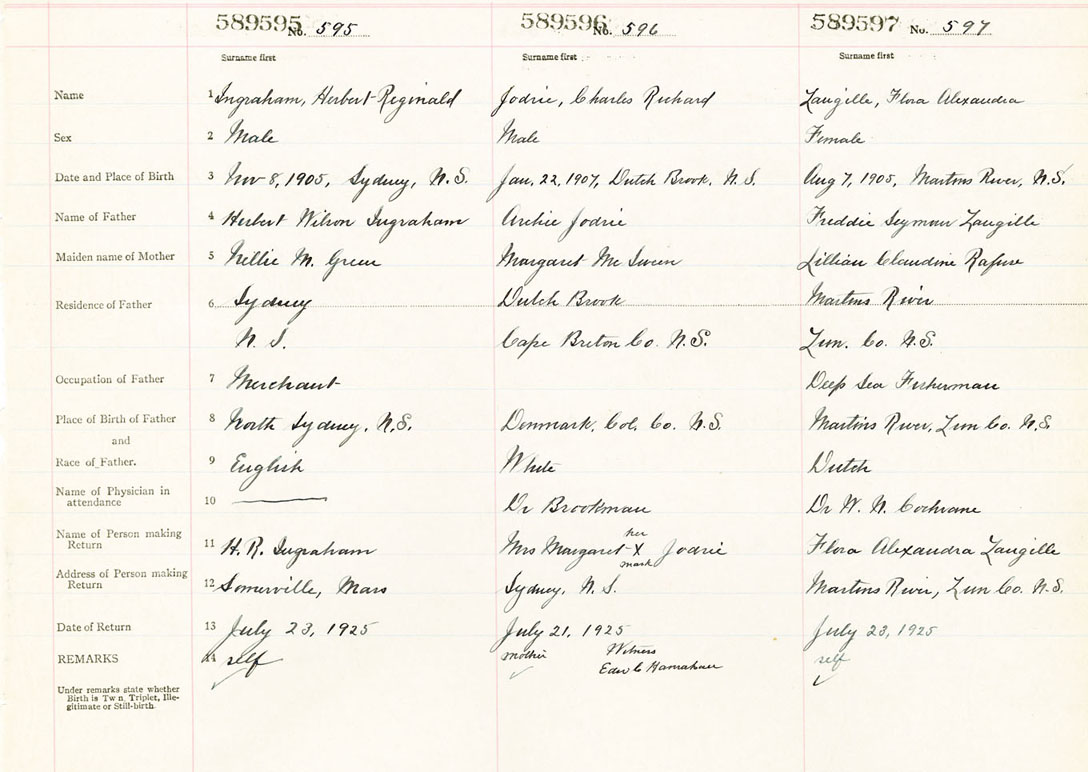 589595 No. 595 589596 No. 596 589597 No. 597
Surname first Surname first Surname first
Name 1 Ingraham, Herbert Reginald Jodrie, Charles Richard Zaugille, Flora Alexandra
Sex 2 Male Male Female
Date and Place of Birth 3 Nov 8, 1905, Sydney, N.S. Jan, 22, 1907, Dutch Brook, N.S. Aug 7, 1905, Martins River, N.S.
Name of Father 4 Herbert Wilson Ingraham Archie Jodrie Freddie Seymour Zaugille
Maiden name of Mother 5 Nellie M. Green Margaret Mc Lillian Claudine Rafuse
Residence of Father 6 Sydney Dutch Brook Martins River
N.S. Cape Breton Co. N.S. Lun. Co. N.S.
Occupation of Father 7 Merchant Deep Sea Fisherman
Place of Birth of Father 8 North Sydney, N.S. Denmark, Col. Co. N.S. Martins River, Lun Co. N.S.
and
Race of Father. 9 English White Dutch
Name of Physician in
attendance 10 Dr Brookman Dr W. N. Cochrane
Name of Person making
Return 11 H. R. Ingraham Mrs Margaret her X mark Jodrie Flora Alexandra Zaugille
Address of Person making
Return 12 Somerville, Mass Sydney, N.S. Martins River, Lun Co. N.S.
Date of Return 13 July 23, 1925 July 21, 1925 July 23, 1925
REMARKS 14 self mother Witness self
Under remarks state whether
Birth is Twin, Triplet, Ille-
gitimate or Still-birth.